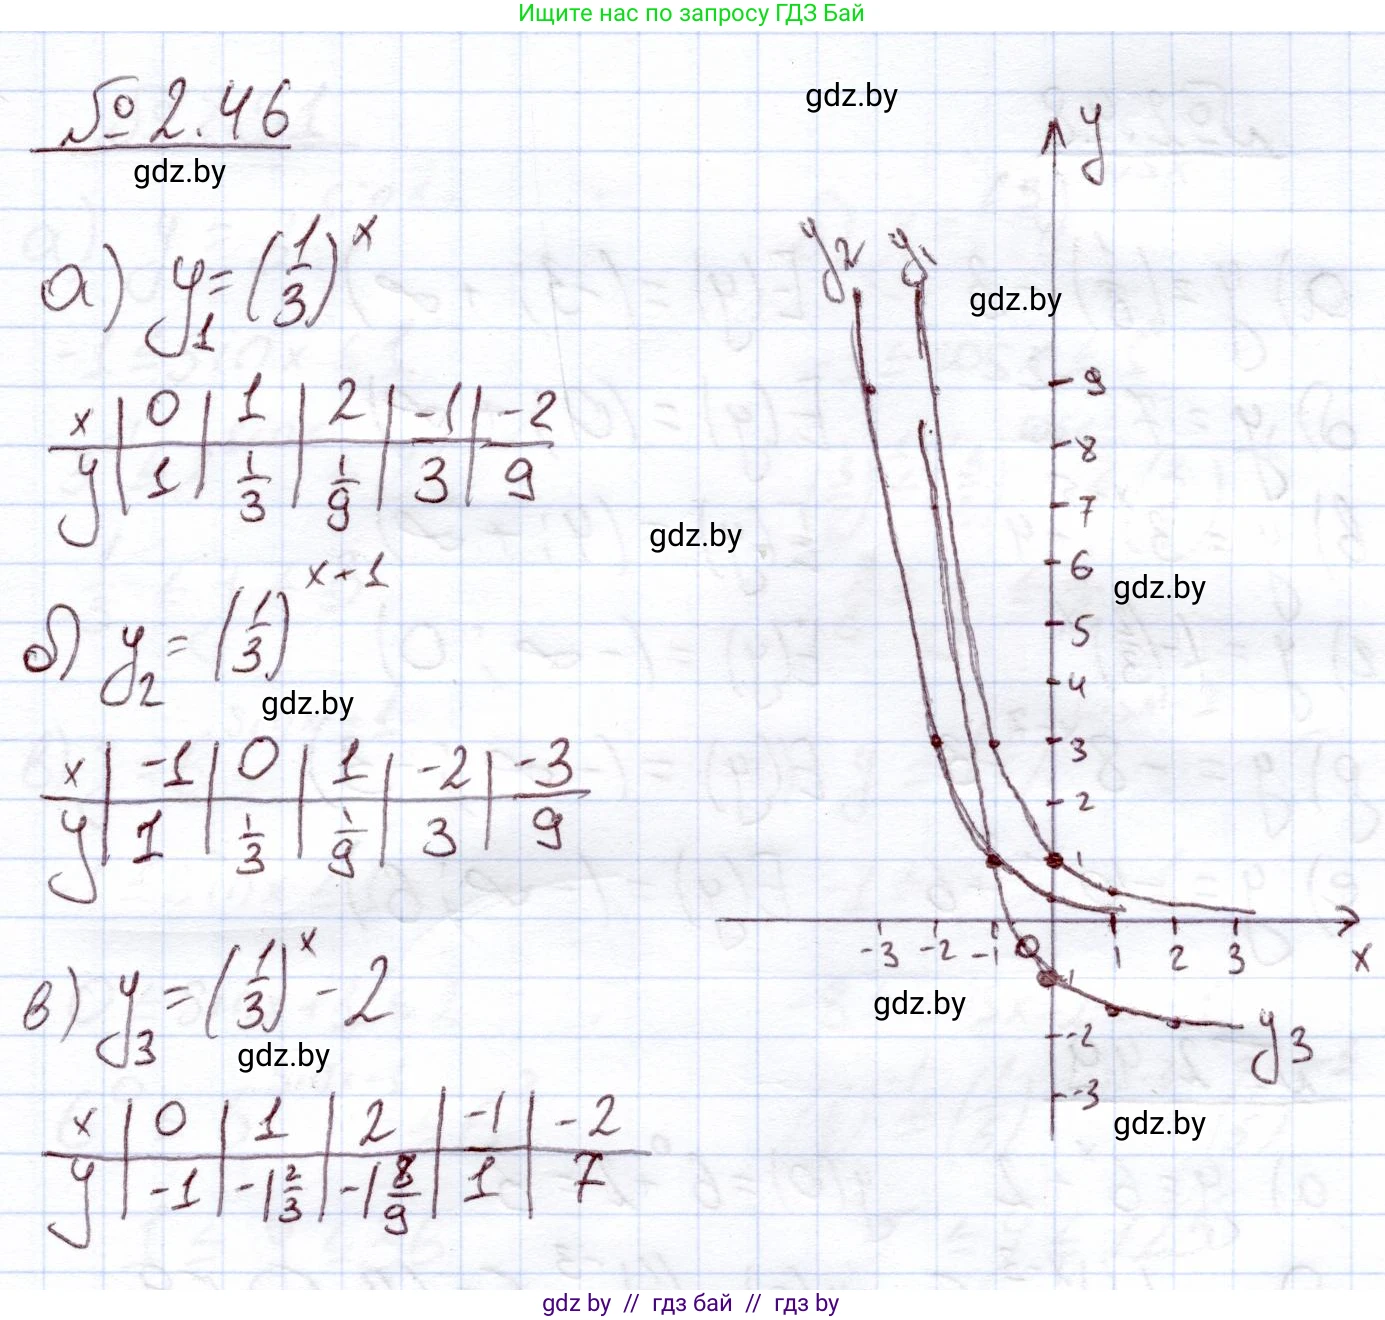 Ищите нас по запросу ГДЗ Бай
№ 2.46
gdz.by
gdz.by
а) y₁ = (1/3)^x
x | 0 | 1 | 2 | -1 | -2
y | 1 | 1/3 | 1/9 | 3 | 9
б) y₂ = (1/3)^x+1
gdz.by
x | -1 | 0 | 1 | -2 | -3
y | 1 | 1/3 | 1/9 | 3 | 9
в) y₃ = (1/3)^x - 2
gdz.by
x | 0 | 1 | 2 | -1 | -2
y | -1 | -1 2/3 | -1 8/9 | 1 | 7
y
y₂ y₁
gdz.by
9
8
7
gdz.by
6
gdz.by
5
4
3
2
1
-3 -2 -1 0 1 2 3 x
-1
gdz.by
-2 y₃
-3
gdz.by
gdz by // гдз бай // гдз by